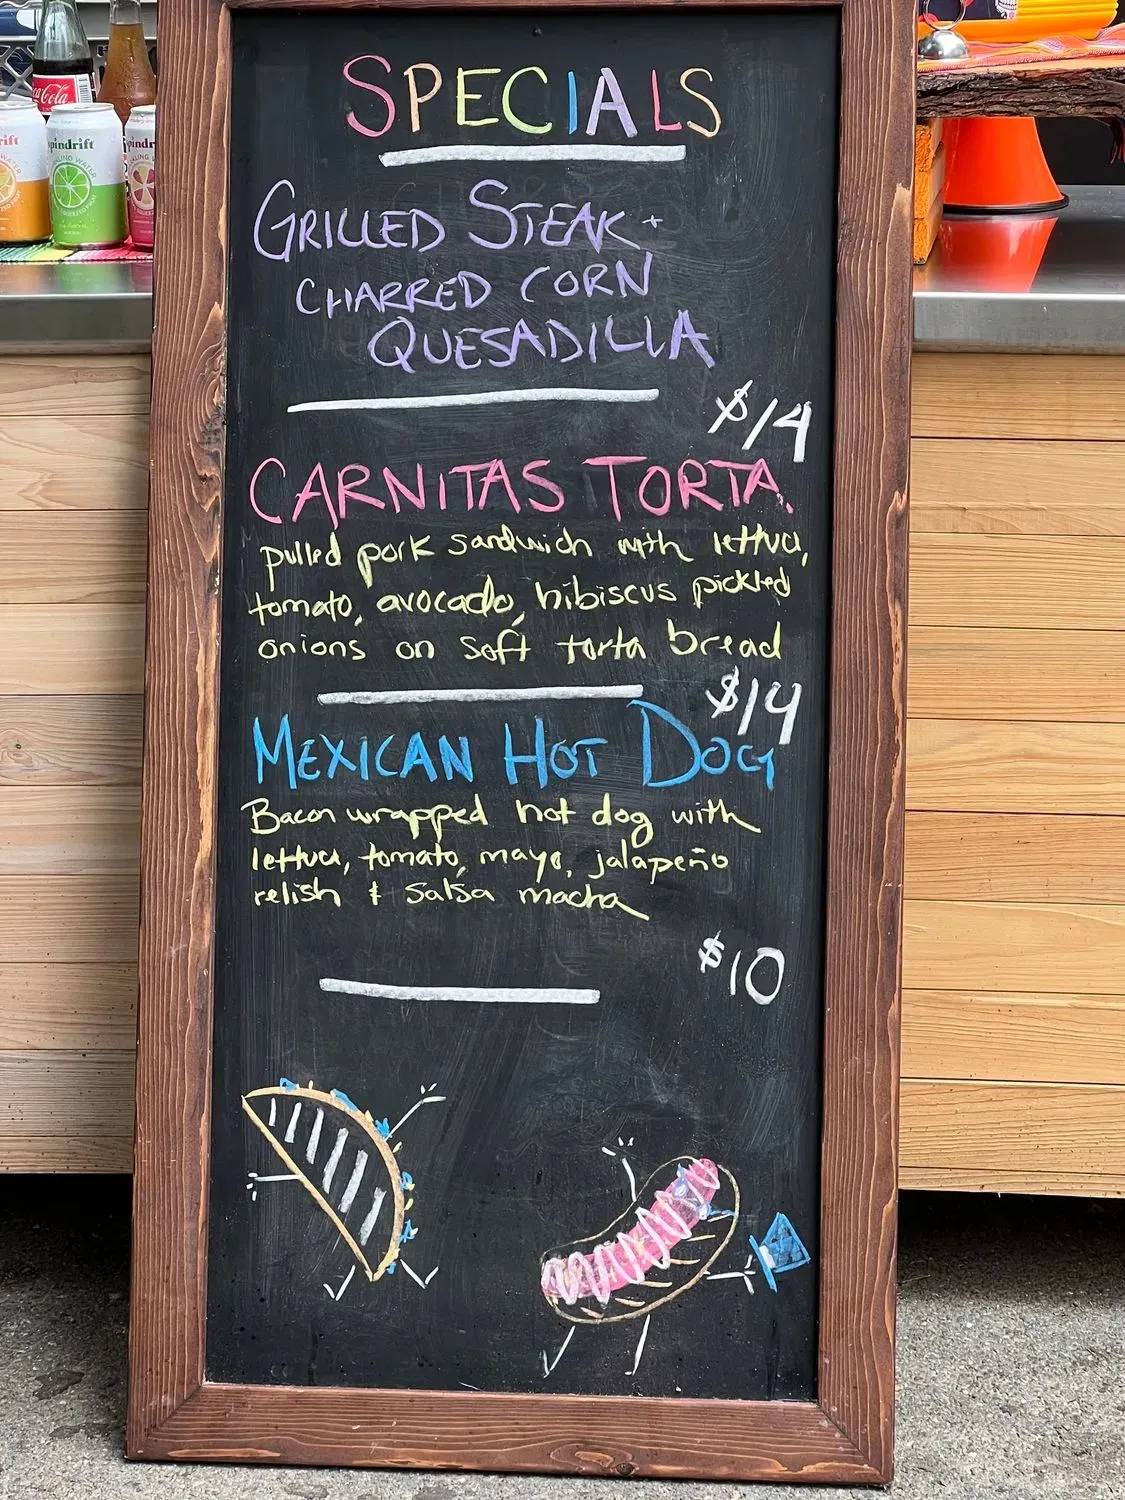 SPECIALS
GRILLED STEAK +
CHARRED CORN
QUESADILLA
$14
CARNITAS TORTA.
pulled pork sandwich with lettuce,
tomato, avocado, hibiscus pickled
onions on soft torta bread
$14
MEXICAN HOT DOG
Bacon wrapped hot dog with
lettuce, tomato, mayo, jalapeño
relish & salsa macha
$10
Coca-Cola
spindrift
SPARKLING WATER